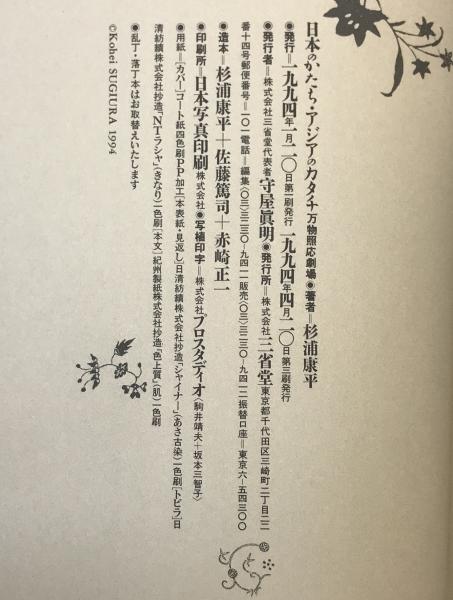 日本のかたち・アジアのカタチ 万物照応劇場●著者＝杉浦康平
●発行＝一九九四年一月一〇日第一刷発行 一九九四年四月二〇日第三刷発行
●発行者＝株式会社三省堂代表者守屋眞明●発行所＝株式会社三省堂 東京都千代田区三崎町二丁目二二
番十四号郵便番号＝一〇一電話＝編集〈〇三〉三二三〇-九四一一販売〈〇三〉三二三〇-九四一二振替口座＝東京六-五四三〇〇
●造本＝杉浦康平＋佐藤篤司＋赤崎正一
●印刷所＝日本写真印刷株式会社●写植印字＝株式会社プロスタディオ〈駒井靖夫＋坂本三智子〉
●用紙＝[カバー]コート紙四色刷PP加工[本表紙・見返し]日清紡績株式会社抄造「シャイナー」（あさ古染）一色刷[トビラ]日
清紡績株式会社抄造「NTラシャ」（きなり）二色刷[本文]紀州製紙株式会社抄造「色上質」（肌）一色刷
●乱丁・落丁本はお取替えいたします
©Kohei SUGIURA 1994